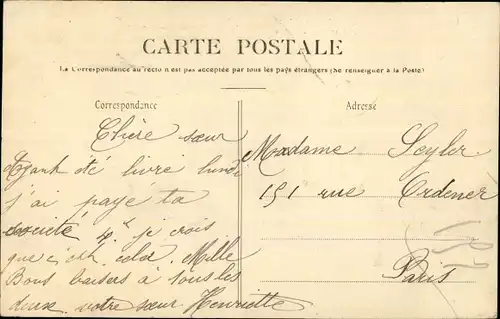 CARTE POSTALE
La Correspondance au recto n'est pas acceptée par tous les pays étrangers (Se renseigner à la Poste)
Correspondance
Adresse
Chère sœur
Ayant été livré lundi
j'ai payé ta
société 4f je crois
que c'est cela. Mille
Bons baisers à tous les
deux votre sœur Henriette
Madame Seyler
151 rue Ordener
Paris